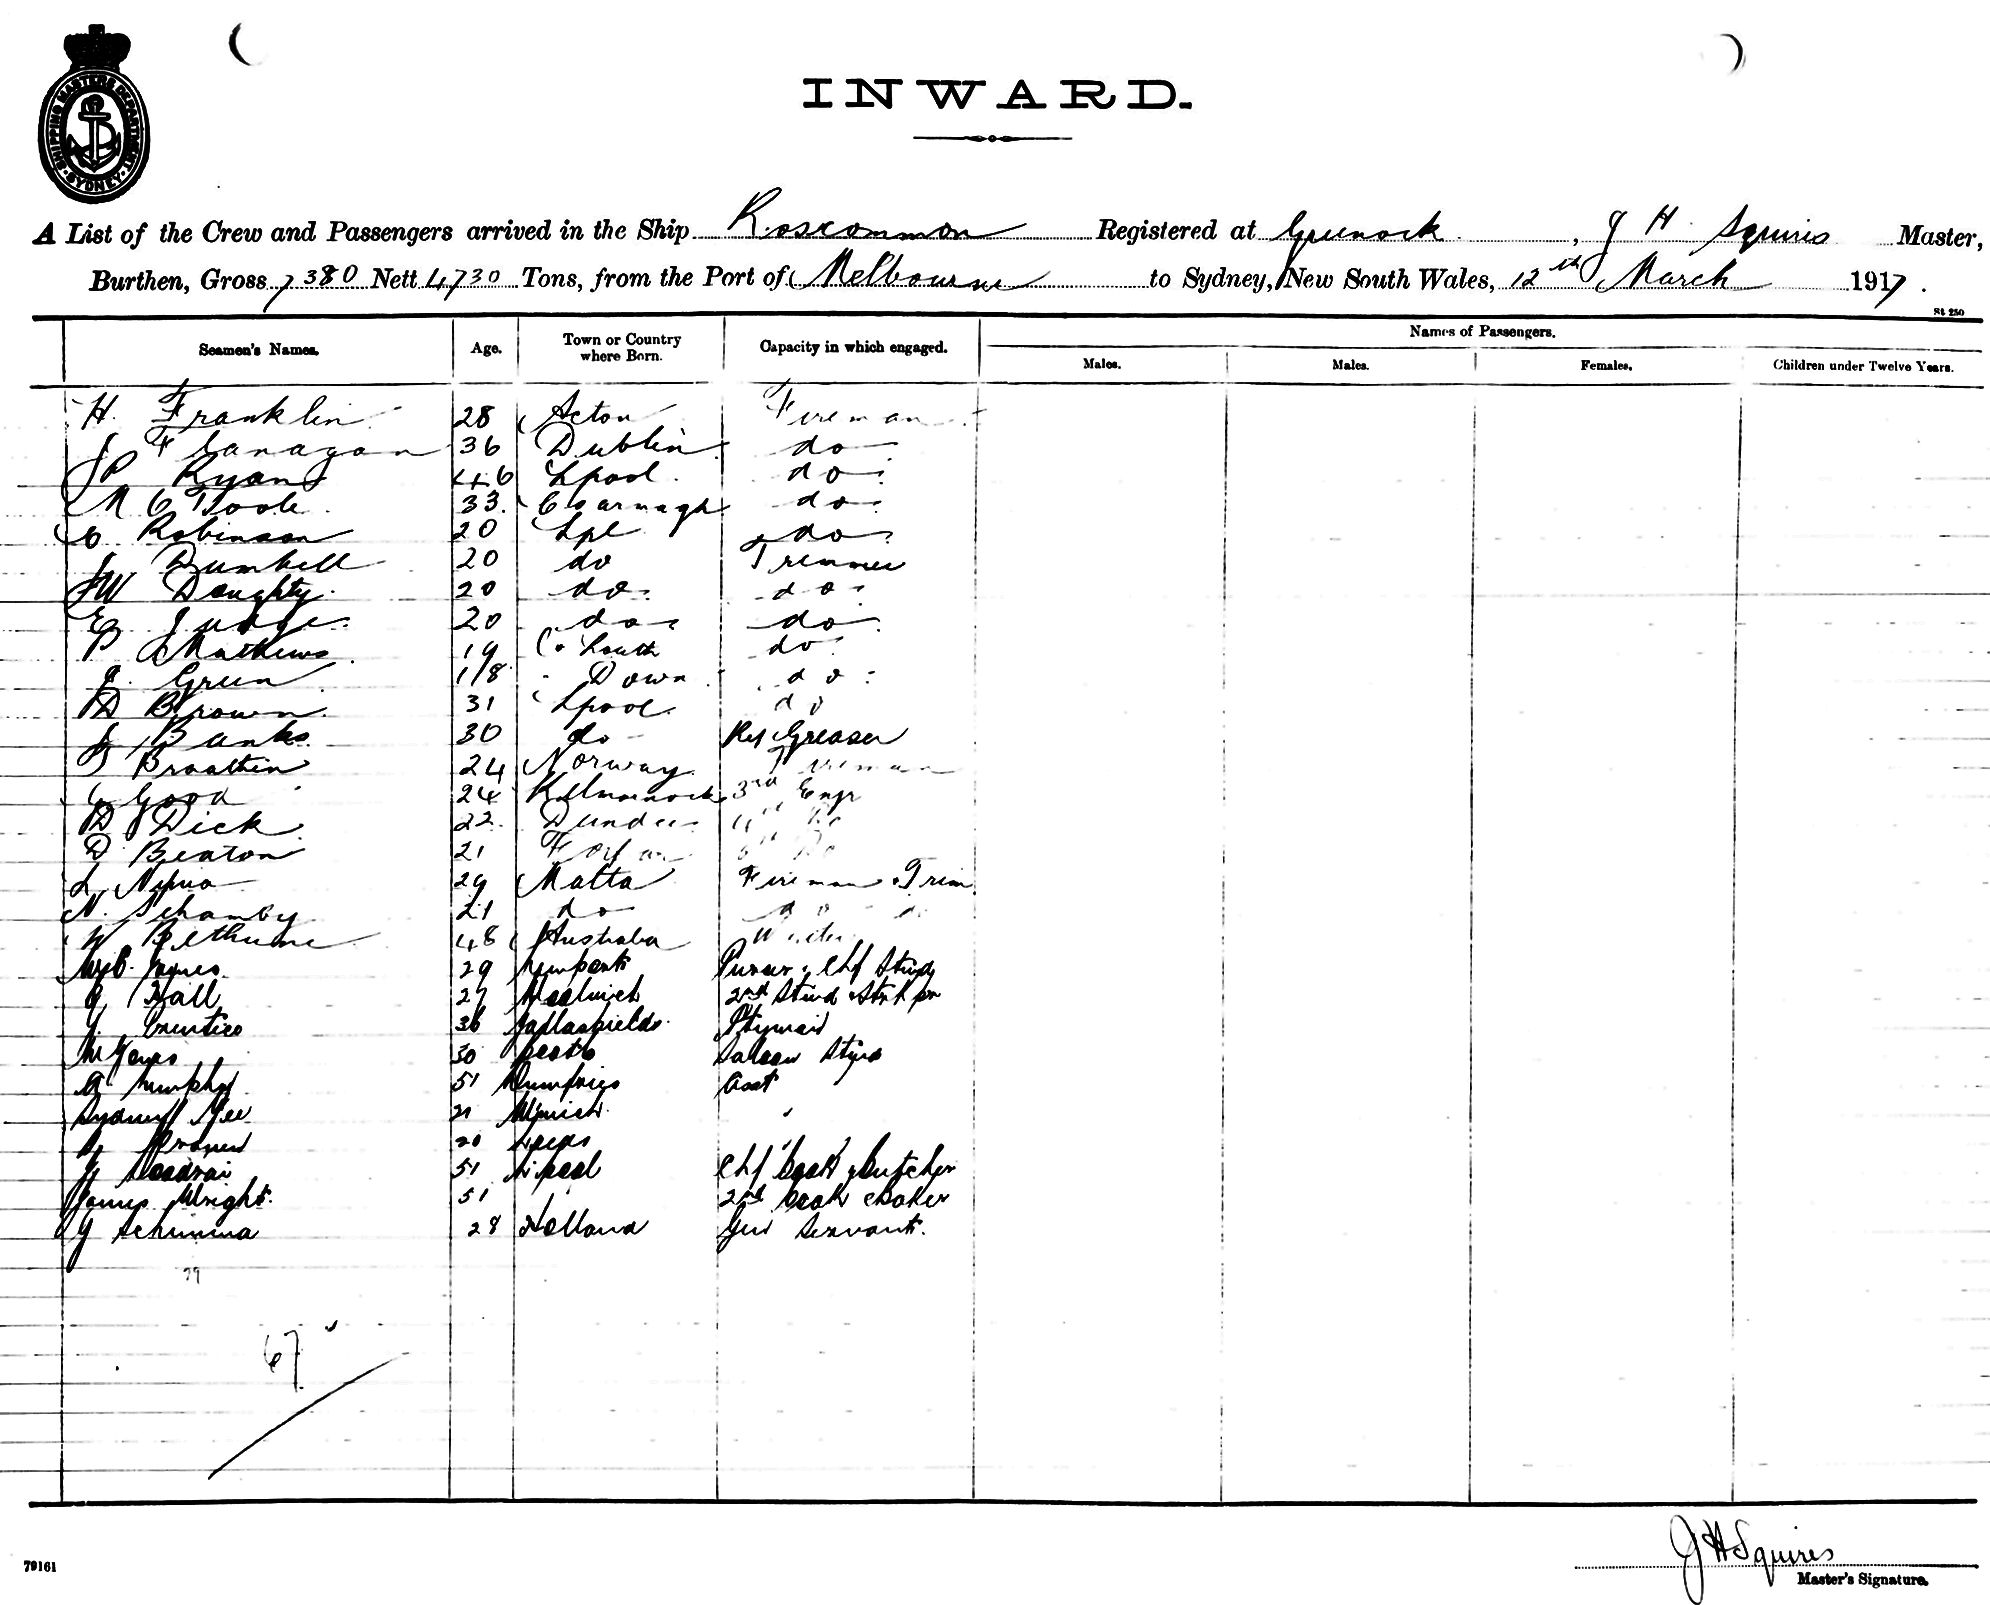 SHIPPING MASTERS DEPARTMENT SYDNEY
INWARD.
A List of the Crew and Passengers arrived in the Ship Roscommon Registered at Greenock, J H Squires Master,
Burthen, Gross 7380 Nett 4730 Tons, from the Port of Melbourne to Sydney, New South Wales, 12th March 1917.
St 250
Seamen's Names. Age. Town or Country where Born. Capacity in which engaged. Names of Passengers.
Males. Males. Females. Children under Twelve Years.
H. Franklin 28 Acton Fireman
J Flanagan 36 Dublin do
JP Ryan 46 Lpool do
M O'Toole 33 do
Robinson 20 Lpl do
J Dumbell 20 do Trimmer
JW Doughty 20 do do
E Judge 20 do do
P Mathews 19 Co Louth do
J. Green 18 " Down do
D Brown 31 Lpool do
J Banks 30 do Ref Greaser
Braathen 24 Norway Fireman
Good 24 Kilmarnock 3rd Engr
D Dick 22 Dundee 4th Do
D Beaton 21 Forfar 5th Do
L 29 Malta Fireman & Trim
N. Schamby 21 do do
W Bethune 48 Australia
Jones 29 Newport Purser & Chf Stwd
G Hall 27 Woolwich 2nd Stwd Strkpr
J. Prentice 36 Stewrd
30 Saloon Stwd
Murphy 51 Dumfries Asst
Sydney Gee 21 "
20 Leeds "
J 51 L'pool Chf Cook & Butcher
James Wright 51 2nd Cook & Baker
J Schimina 28 Holland Genl Servant.
29
67
J H Squires
Master's Signature.
79161